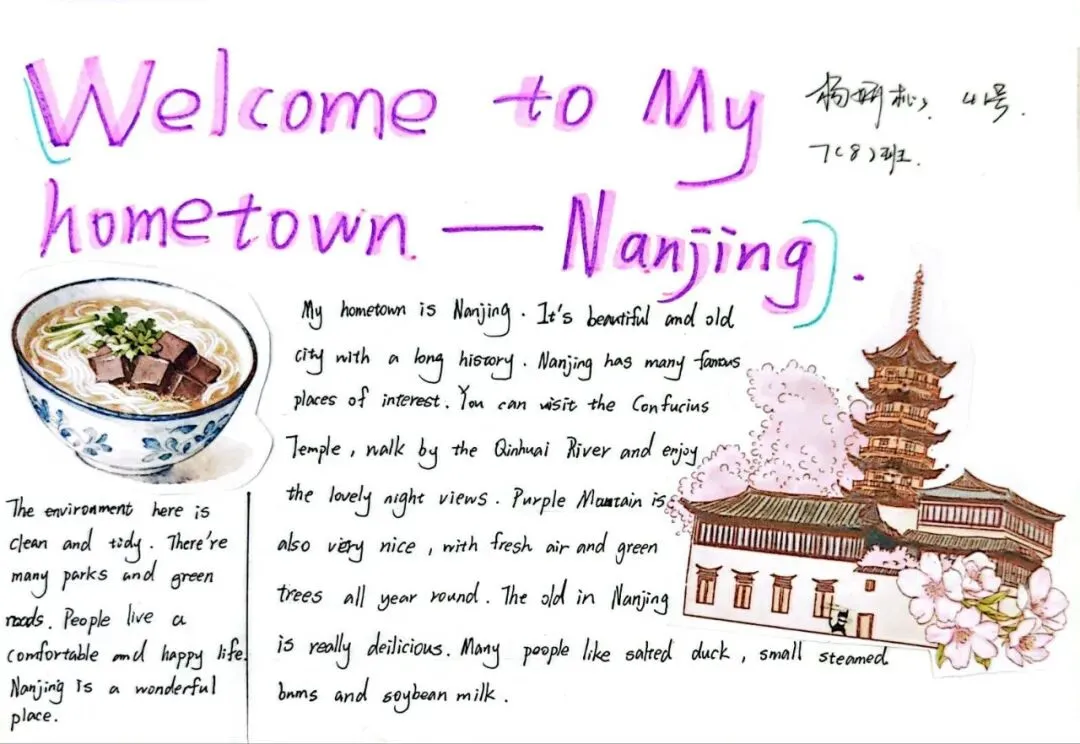 Welcome to My
hometown — Nanjing.
41号.
7(8)班.
My hometown is Nanjing. It's beautiful and old
city with a long history. Nanjing has many famous
places of interest. You can visit the Confucius
Temple, walk by the Qinhuai River and enjoy
the lovely night views. Purple Mountain is
also very nice, with fresh air and green
trees all year round. The old in Nanjing
is really deilicious. Many people like salted duck, small steamed
buns and soybean milk.
The environment here is
clean and tidy. There're
many parks and green
roads. People live a
comfortable and happy life.
Nanjing is a wonderful
place.